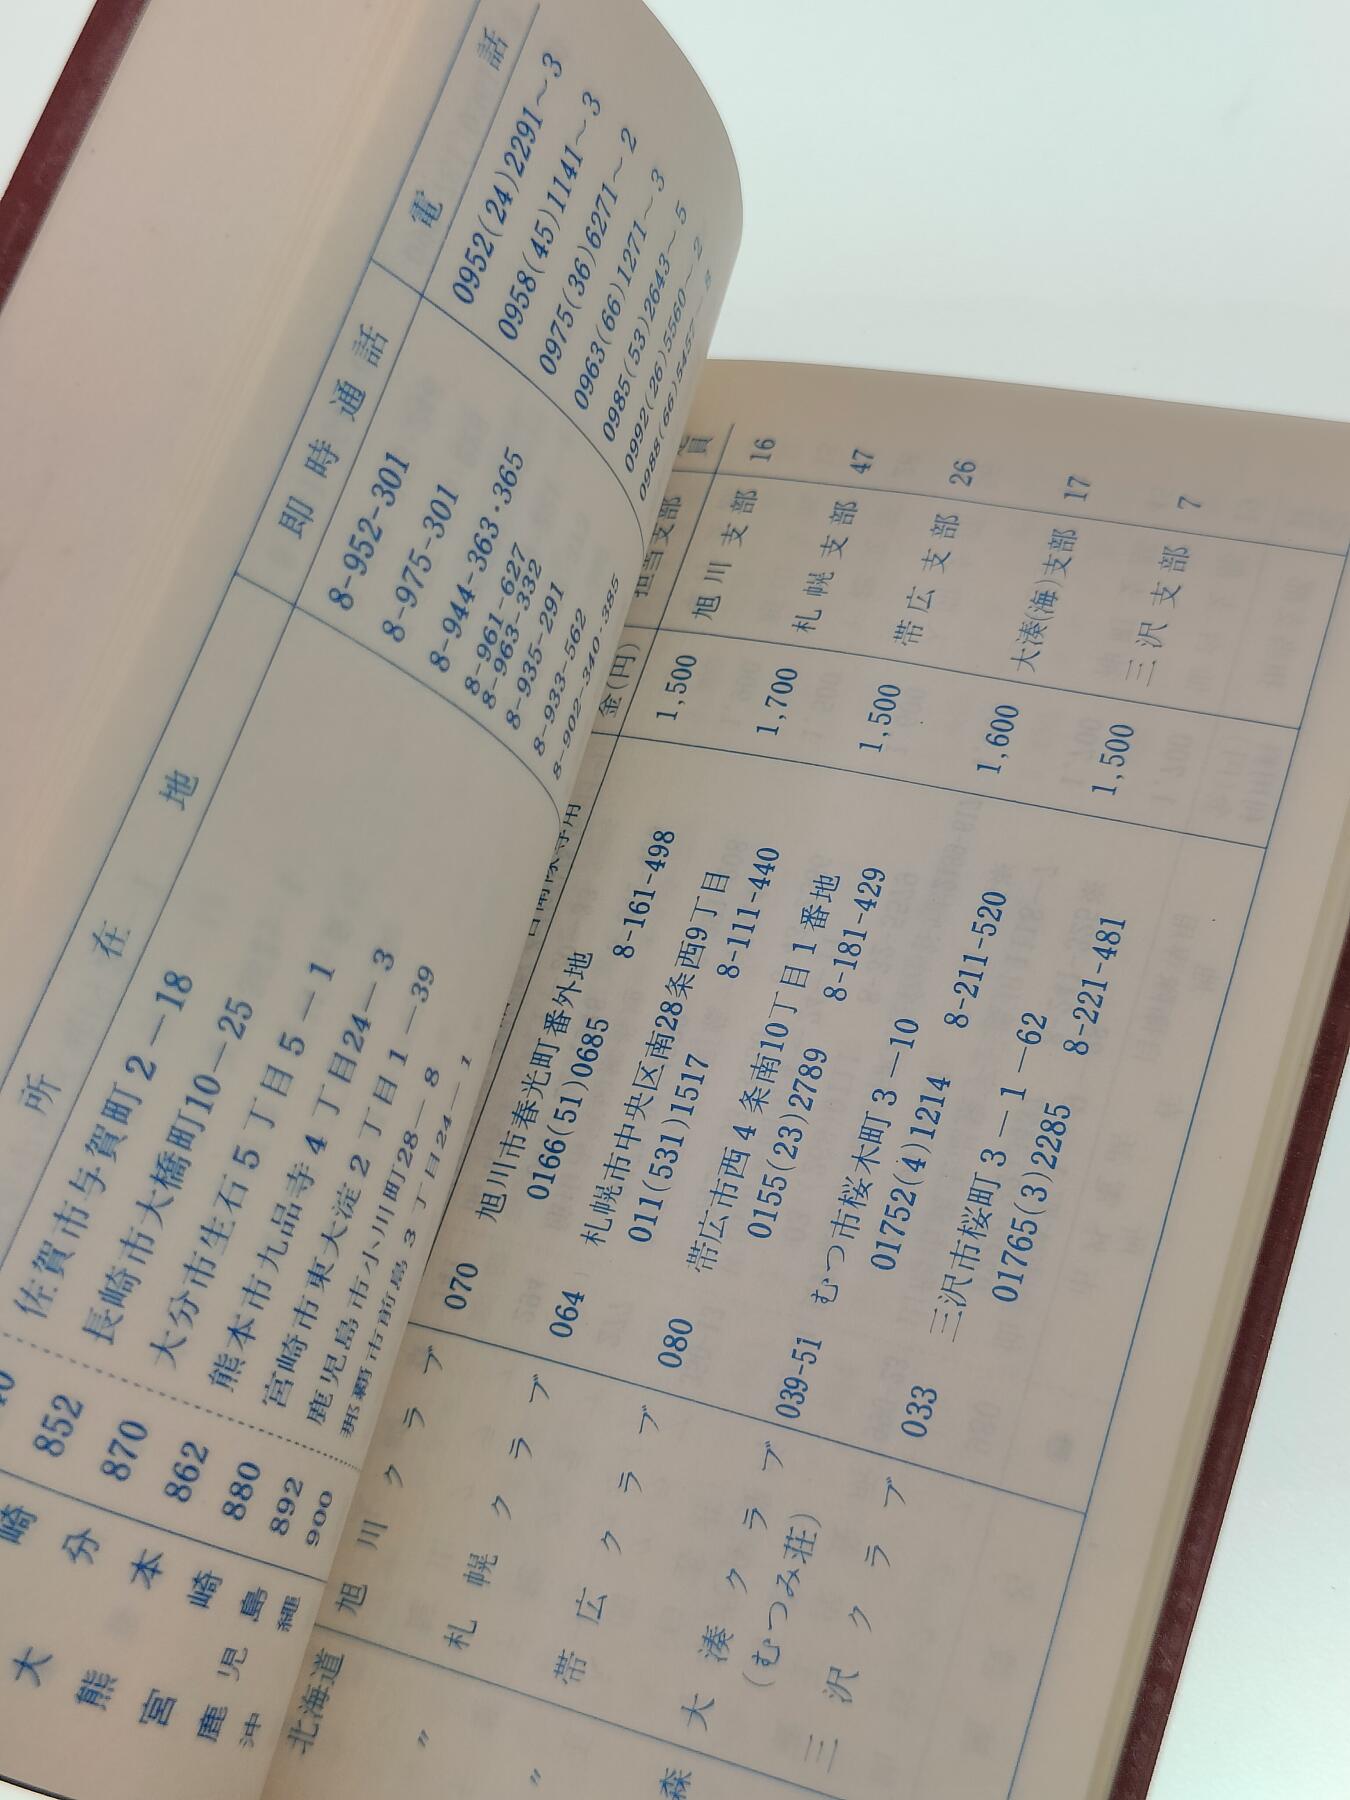 所 在 地 即 時 通 話 電 話
佐賀市与賀町2—18 8-952-301 0952(24)2291～3
崎 852 長崎市大橋町10—25 8-975-301 0958(45)1141～3
大 分 870 大分市生石5丁目5—1 8-944-363・365 0975(36)6271～2
熊 本 862 熊本市九品寺4丁目24—3 8-961-627 0963(66)1271～3
8-963-332
宮 崎 880 宮崎市東大淀2丁目1—39 8-935-291 0985(53)2643～5
鹿児島 892 鹿児島市小川町28—8 8-933-562 0992(26)5560～2
沖 縄 900 那覇市前島3丁目24—1 8-902-340・385 0988(66)5457～8
金(円) 担当支部 員
北海道 旭川クラブ 070 旭川市春光町番外地 1,500 旭川支部 16
0166(51)0685 8-161-498
〃 札幌クラブ 064 札幌市中央区南28条西9丁目 1,700 札幌支部 47
011(531)1517 8-111-440
〃 帯広クラブ 080 帯広市西4条南10丁目1番地 1,500 帯広支部 26
0155(23)2789 8-181-429
森 大湊クラブ 039-51 むつ市桜木町3—10 1,600 大湊(海)支部 17
(むつみ荘) 01752(4)1214 8-211-520
三沢クラブ 033 三沢市桜町3—1—62 1,500 三沢支部 7
01765(3)2285 8-221-481